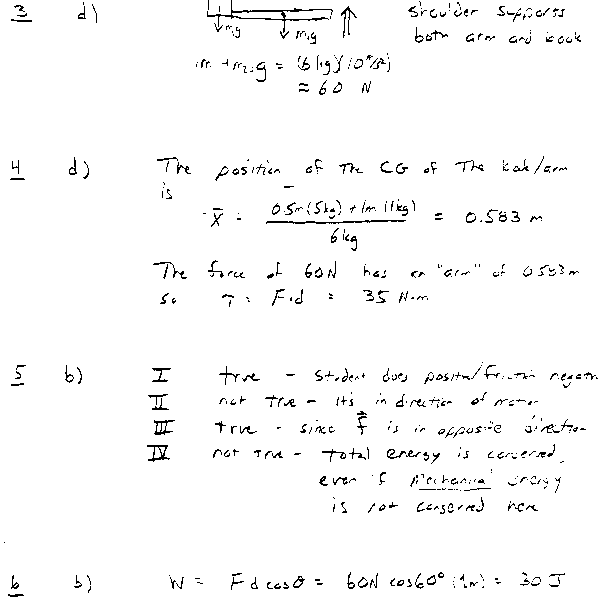 3 d) shoulder supports
both arm and book
m₁g m₂g
m₁+m₂g = (6 kg)(10 m/s²)
≈ 60 N
4 d) The position of the CG of the book/arm
is
x̄ = 0.5m(5kg) + 1m(1kg) / 6kg = 0.583 m
The force of 60N has an "arm" of 0.583m
so τ = F·d = 35 N·m
5 b) I true - student does positive/friction negative
II not true - it's in direction of motion
III true - since f⃗ is in opposite direction
IV not true - total energy is conserved,
even if mechanical energy
is not conserved here
6 b) W = Fd cosθ = 60N cos60° (1m) = 30 J